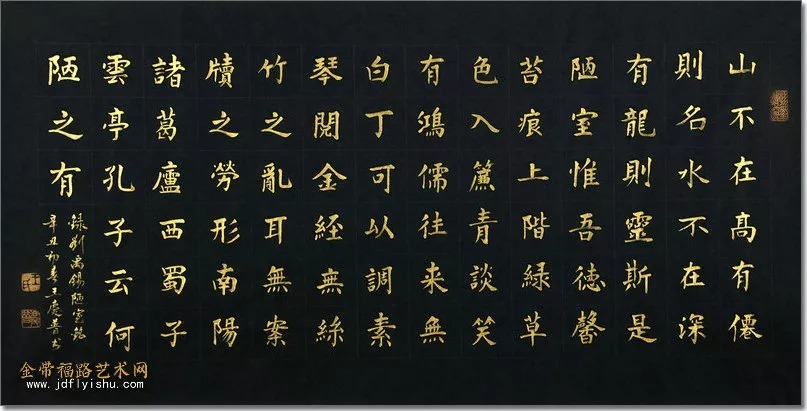 山不在高有僊
則名水不在深
有龍則靈斯是
陋室惟吾德馨
苔痕上階綠草
色入簾青談笑
有鴻儒往来無
白丁可以調素
琴閱金經無絲
竹之亂耳無案
牘之勞形南陽
諸葛廬西蜀子
雲亭孔子云何
陋之有
録刘禹錫陋室銘
辛丑初春王慶普书
金带福路艺术网
www.jdflyishu.com